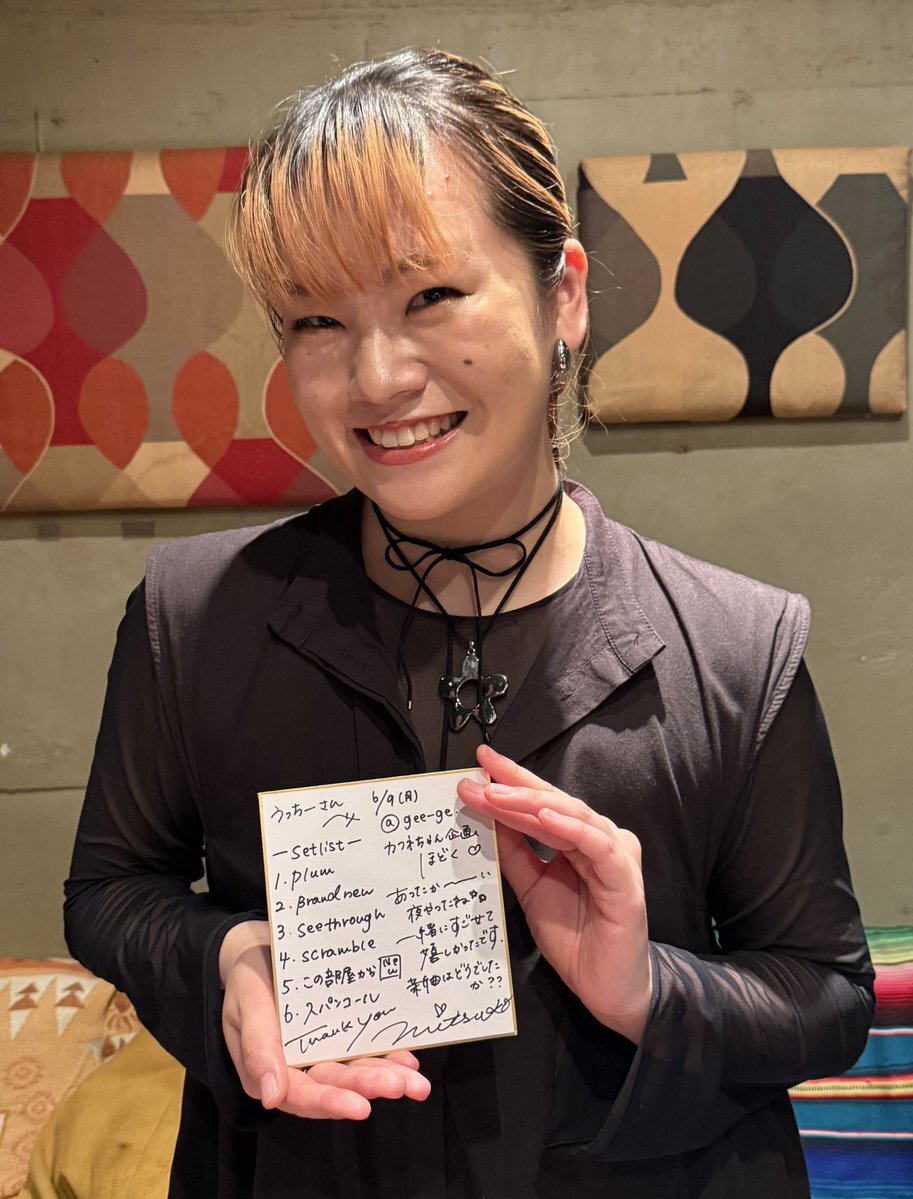 うっちーさんへ
6/9(月)
@gee-ge.
カフネちゃん企画
しほどく♡
-Setlist-
1. plum
2. Brand new
3. seethrough
4. scramble
5. この部屋から New
6. スパンコール
Thank you
あったかーーい
夜やったね
一緒にすごせて
嬉しかったです.
新曲はどうでした
か??
mitsuki